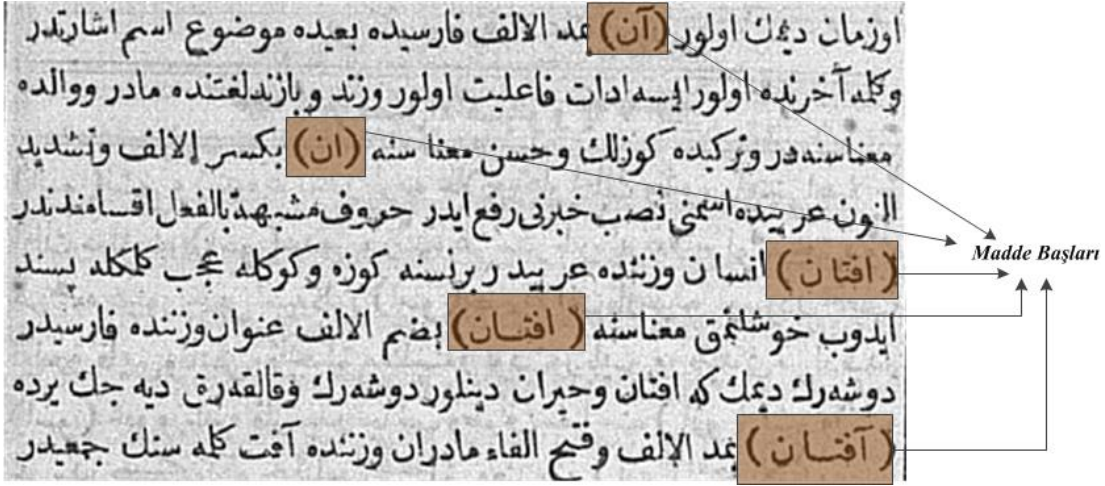 اوزمان ديمك اولور (آن) بمد الالف فارسيده بعيده موضوع اسم اشارتدر
وكلمه آخرنده اولور ايسه ادات فاعليت اولور وزند و بازندلغتنده مادر ووالده
معناسنه در وتركيده كوزلك وحسن معنا سنه (ان) بكسر الالف وتشديد
النون عربيده اسمنى نصب خبرنى رفع ايدر حروف مشبهة بالفعل اقسامندندر
(افتان) انسان وزننده عربيدر برنسنه كوزه وكوكله عجب كلمكله پسند
ايدوب خوشلنمق معناسنه (افتان) بضم الالف عنوان وزننده فارسيدر
دوشه رك ديمك كه افتان وحيران دينلور دوشه رك وقالقه رق ديه جك يرده
(آفتان) بمد الالف وفتح الفاء مادران وزننده آفت كلمه سنك جمعيدر
Madde Başları